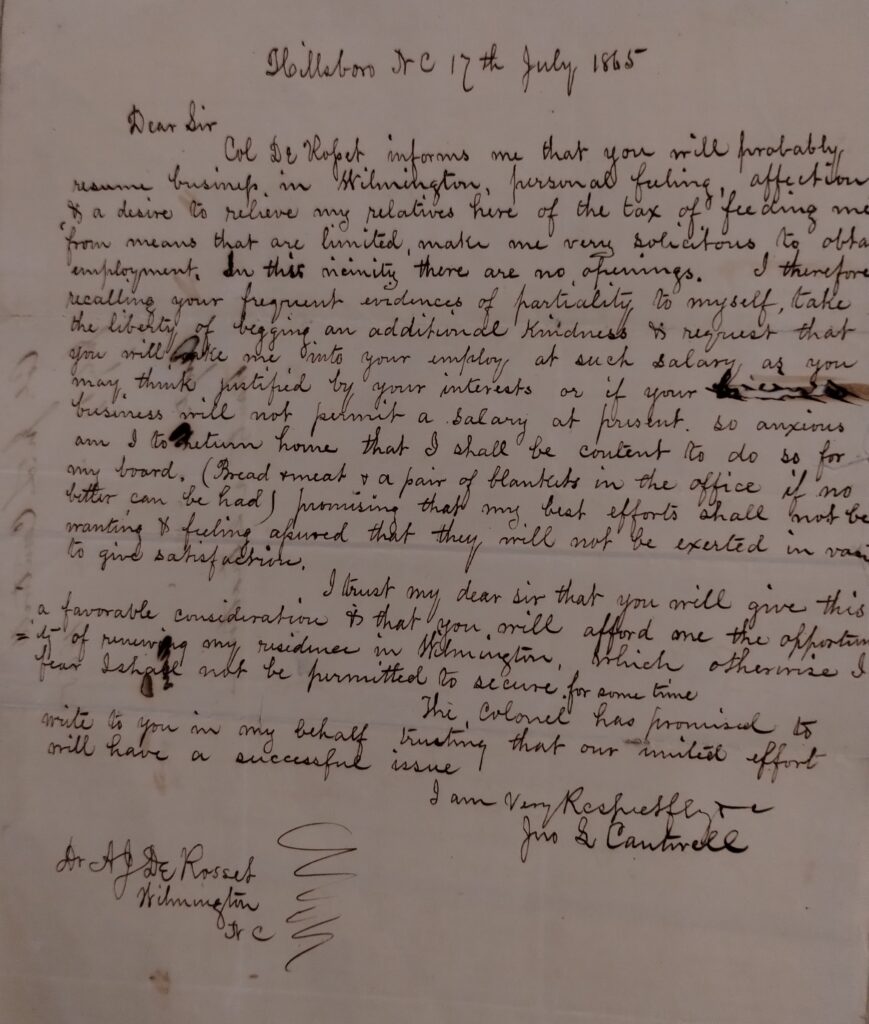 Hillsboro N C 17th July 1865
Dear Sir
Col De Rosset informs me that you will probably
resume business in Wilmington, personal feeling, affection
& a desire to relieve my relatives here of the tax of feeding me
from means that are limited, make me very solicitous to obta
employment. In this vicinity there are no openings. I therefore
recalling your frequent evidences of partiality to myself, take
the liberty of begging an additional kindness & request that
you will take me into your employ at such salary as you
may think justified by your interests or if your
business will not permit a salary at present. so anxious
am I to return home that I shall be content to do so for
my board. (Bread & meat & a pair of blankets in the office if no
better can be had) promising that my best efforts shall not be
wanting & feeling assured that they will not be exerted in vain
to give satisfaction.
I trust my dear sir that you will give this
a favorable consideration & that you will afford me the opportun
=ity of renewing my residence in Wilmington, which otherwise I
fear I shall not be permitted to secure for some time
The Colonel has promised to
write to you in my behalf trusting that our united effort
will have a successful issue
I am Very Respectfly &c
Jno L Cantwell
Dr A J De Rosset
Wilmington
N C